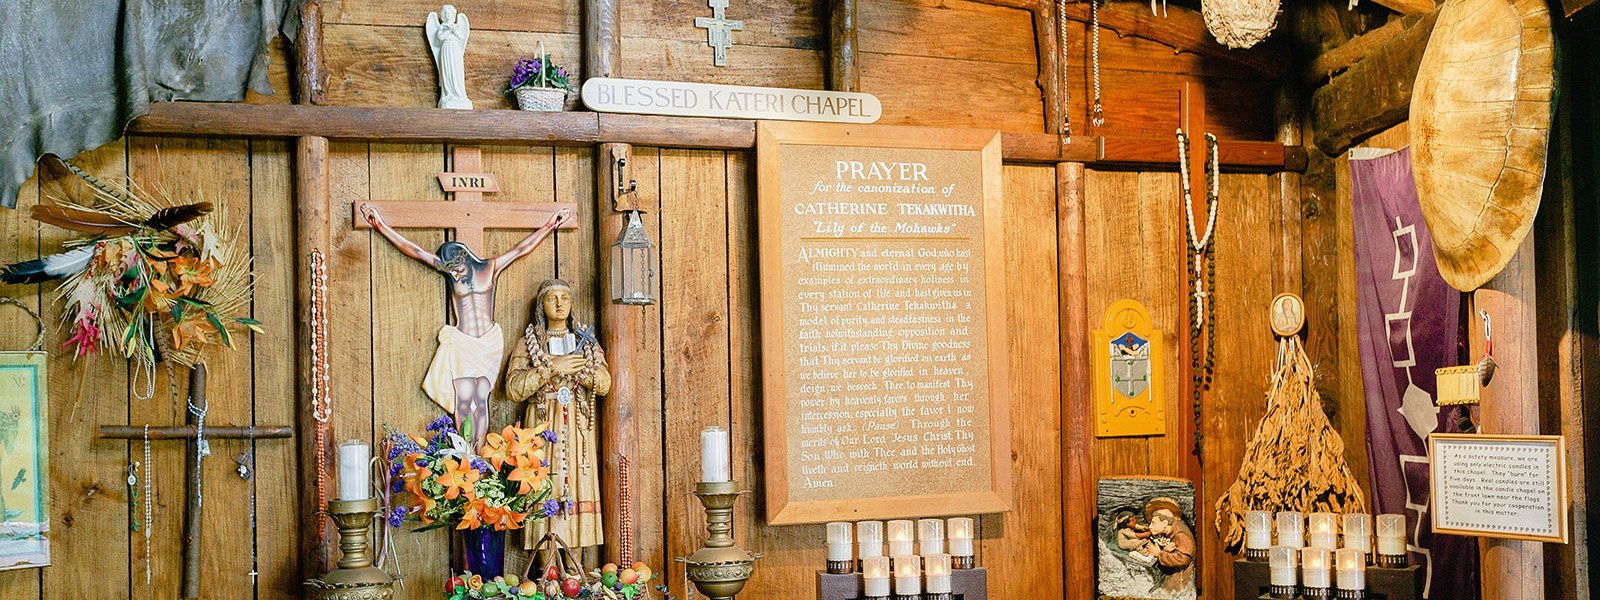 BLESSED KATERI CHAPEL
INRI
PRAYER
for the canonization of
CATHERINE TEKAKWITHA
"Lily of the Mohawks"
ALMIGHTY and eternal God, who hast
illumined the world in every age by
examples of extraordinary holiness in
every station of life and hast given us in
Thy servant Catherine Tekakwitha a
model of purity, and steadfastness in the
faith notwithstanding opposition and
trials, if it please Thy Divine goodness
that Thy servant be glorified on earth as
we believe her to be glorified in heaven,
deign, we beseech Thee, to manifest Thy
power by heavenly favors through her
intercession, especially the favor I now
humbly ask. (Pause) Through the
merits of Our Lord Jesus Christ, Thy
Son, Who with Thee and the Holy Ghost
liveth and reigneth world without end.
Amen.
As a safety measure, we are
using only electric candles in
this chapel. They "burn" for
five days. Real candles are still
available in the candle chapel on
the front lawn near the flags.
Thank you for your cooperation
in this matter.